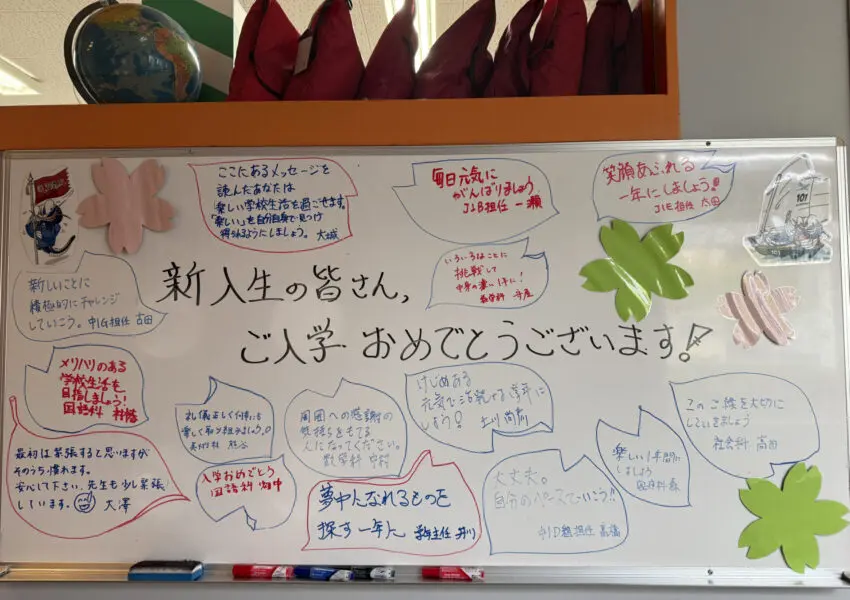 ここにあるメッセージを
読んだあなたは
楽しい学校生活を過ごせます。
「楽しい」を自分自身で見つけ
得られるようにしましょう。 大城
毎日元気に
がんばりましょう
J1B担任 一瀬
笑顔あふれる
一年にしましょう!!
J1E担任 太田
101
新しいことに
積極的にチャレンジ
していこう。中1G担任 吉田
いろいろなことに
挑戦して
中身の濃い1年に!
新入生の皆さん,
ご入学 おめでとうございます!
メリハリのある
学校生活を
目指しましょう!
国語科 村
礼儀正しく何事にも
楽しく取り組みましょう。
熊谷
周囲への感謝の
気持ちをもてる
人になってください。
数学科 中村
けじめある
元気で活気ある学年に
しよう!
土川 尚
このご縁を大切に
していきましょう
社会科 高田
最初は緊張すると思いますが
そのうち慣れます。
安心して下さい、先生も少し緊張
しています。 大澤
入学おめでとう
国語科 畑中
夢中になれるものを
探す一年に 学年主任 井川
大丈夫。
自分のペースでいこう!!
中1D担任 髙橋
楽しい1年間に
しましょう
森